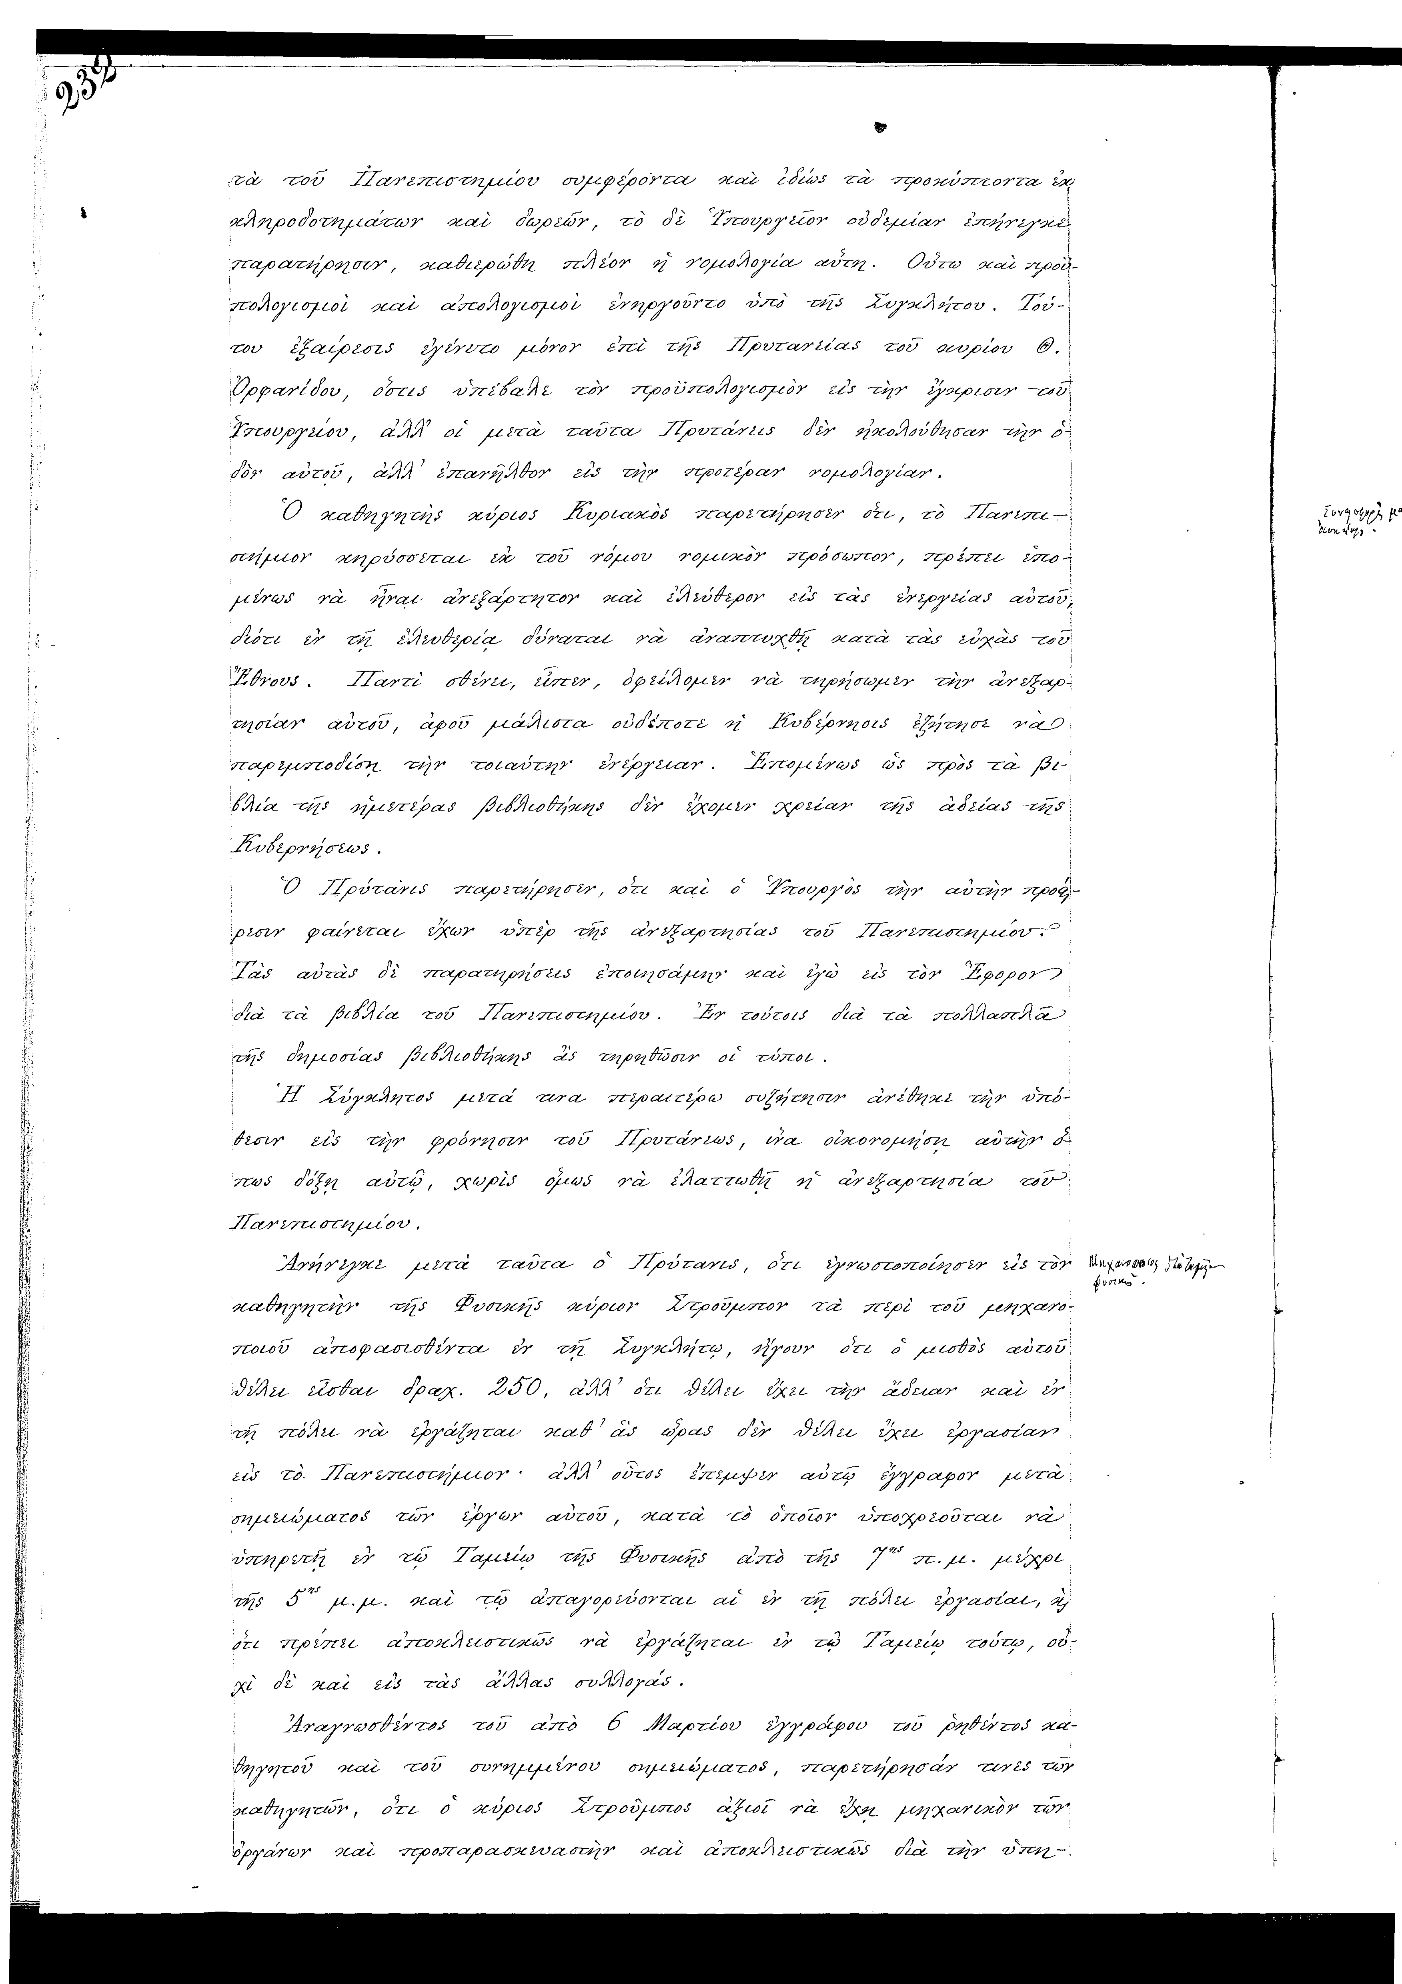 232
τὰ τοῦ Πανεπιστημίου συμφέροντα καὶ ἰδίως τὰ προκύπτοντα ἐκ
κληροδοτημάτων καὶ δωρεῶν, τὸ δὲ Ὑπουργεῖον οὐδεμίαν ἐπήνεγκε
παρατήρησιν, καθιερώθη πλέον ἡ νομολογία αὕτη. Οὕτω καὶ προϋ-
πολογισμοὶ καὶ ἀπολογισμοὶ ἐνηργοῦντο ὑπὸ τῆς Συγκλήτου. Τού-
του ἐξαίρεσις ἐγένετο μόνον ἐπὶ τῆς Πρυτανείας τοῦ κυρίου Θ.
Ὀρφανίδου, ὅστις ὑπέβαλε τὸν προϋπολογισμὸν εἰς τὴν ἔγκρισιν τοῦ
Ὑπουργείου, ἀλλ' οἱ μετὰ ταῦτα Πρυτάνεις δὲν ἠκολούθησαν τὴν ὁ-
δὸν αὐτοῦ, ἀλλ' ἐπανῆλθον εἰς τὴν προτέραν νομολογίαν.
Ὁ καθηγητὴς κύριος Κυριακὸς παρετήρησεν ὅτι, τὸ Πανεπι-
στήμιον κηρύσσεται ἐκ τοῦ νόμου νομικὸν πρόσωπον, πρέπει ἑπο-
μένως νὰ ᾖναι ἀνεξάρτητον καὶ ἐλεύθερον εἰς τὰς ἐνεργείας αὐτοῦ,
διότι ἐν τῇ ἐλευθερίᾳ δύναται νὰ ἀναπτυχθῇ κατὰ τὰς εὐχὰς τοῦ
Ἔθνους. Παντὶ σθένει, εἶπεν, ὀφείλομεν νὰ τηρήσωμεν τὴν ἀνεξαρ-
τησίαν αὐτοῦ, ἀφοῦ μάλιστα οὐδέποτε ἡ Κυβέρνησις ἐζήτησε νὰ
παρεμποδίσῃ τὴν τοιαύτην ἐνέργειαν. Ἑπομένως ὡς πρὸς τὰ βι
βλία τῆς ἡμετέρας βιβλιοθήκης δὲν ἔχομεν χρείαν τῆς ἀδείας τῆς
Κυβερνήσεως.
Ὁ Πρύτανις παρετήρησεν, ὅτι καὶ ὁ Ὑπουργὸς τὴν αὐτὴν προαί-
ρεσιν φαίνεται ἔχων ὑπὲρ τῆς ἀνεξαρτησίας τοῦ Πανεπιστημίου.
Τὰς αὐτὰς δὲ παρατηρήσεις ἐποιησάμην καὶ ἐγὼ εἰς τὸν Ἔφορον
διὰ τὰ βιβλία τοῦ Πανεπιστημίου. Ἐν τούτοις διὰ τὰ πολλαπλᾶ
τῆς δημοσίας βιβλιοθήκης ἂς τηρηθῶσιν οἱ τύποι.
Ἡ Σύγκλητος μετά τινα περαιτέρω συζήτησιν ἀνέθηκε τὴν ὑπό-
θεσιν εἰς τὴν φρόνησιν τοῦ Πρυτάνεως, ἵνα οἰκονομήσῃ αὐτὴν ὅ-
πως δόξῃ αὐτῷ, χωρὶς ὅμως νὰ ἐλαττωθῇ ἡ ἀνεξαρτησία τοῦ
Πανεπιστημίου.
Ἀνήνεγκε μετὰ ταῦτα ὁ Πρύτανις, ὅτι ἐγνωστοποίησεν εἰς τὸν
καθηγητὴν τῆς Φυσικῆς κύριον Στροῦμπον τὰ περὶ τοῦ μηχανο-
ποιοῦ ἀποφασισθέντα ἐν τῇ Συγκλήτῳ, ἤγουν ὅτι ὁ μισθὸς αὐτοῦ
θέλει εἶσθαι δραχ. 250, ἀλλ' ὅτι θέλει ἔχει τὴν ἄδειαν καὶ ἐν
τῇ πόλει νὰ ἐργάζηται καθ' ἃς ὥρας δὲν θέλει ἔχει ἐργασίαν
εἰς τὸ Πανεπιστήμιον· ἀλλ' οὗτος ἔπεμψεν αὐτῷ ἔγγραφον μετὰ
σημειώματος τῶν ἔργων αὐτοῦ, κατὰ τὸ ὁποῖον ὑποχρεοῦται νὰ
ὑπηρετῇ ἐν τῷ Ταμείῳ τῆς Φυσικῆς ἀπὸ τῆς 7ης π.μ. μέχρι
τῆς 5ης μ.μ. καὶ τῷ ἀπαγορεύονται αἱ ἐν τῇ πόλει ἐργασίαι, κ̀
ὅτι πρέπει ἀποκλειστικῶς νὰ ἐργάζηται ἐν τῷ Ταμείῳ τούτῳ, οὐ-
χὶ δὲ καὶ εἰς τὰς ἄλλας συλλογάς.
Ἀναγνωσθέντος τοῦ ἀπὸ 6 Μαρτίου ἐγγράφου τοῦ ῥηθέντος κα-
θηγητοῦ καὶ τοῦ συνημμένου σημειώματος, παρετήρησάν τινες τῶν
καθηγητῶν, ὅτι ὁ κύριος Στροῦμπος ἀξιοῖ νὰ ἔχῃ μηχανικὸν τῶν
ὀργάνων καὶ προπαρασκευαστὴν καὶ ἀποκλειστικῶς διὰ τὴν ὑπη-